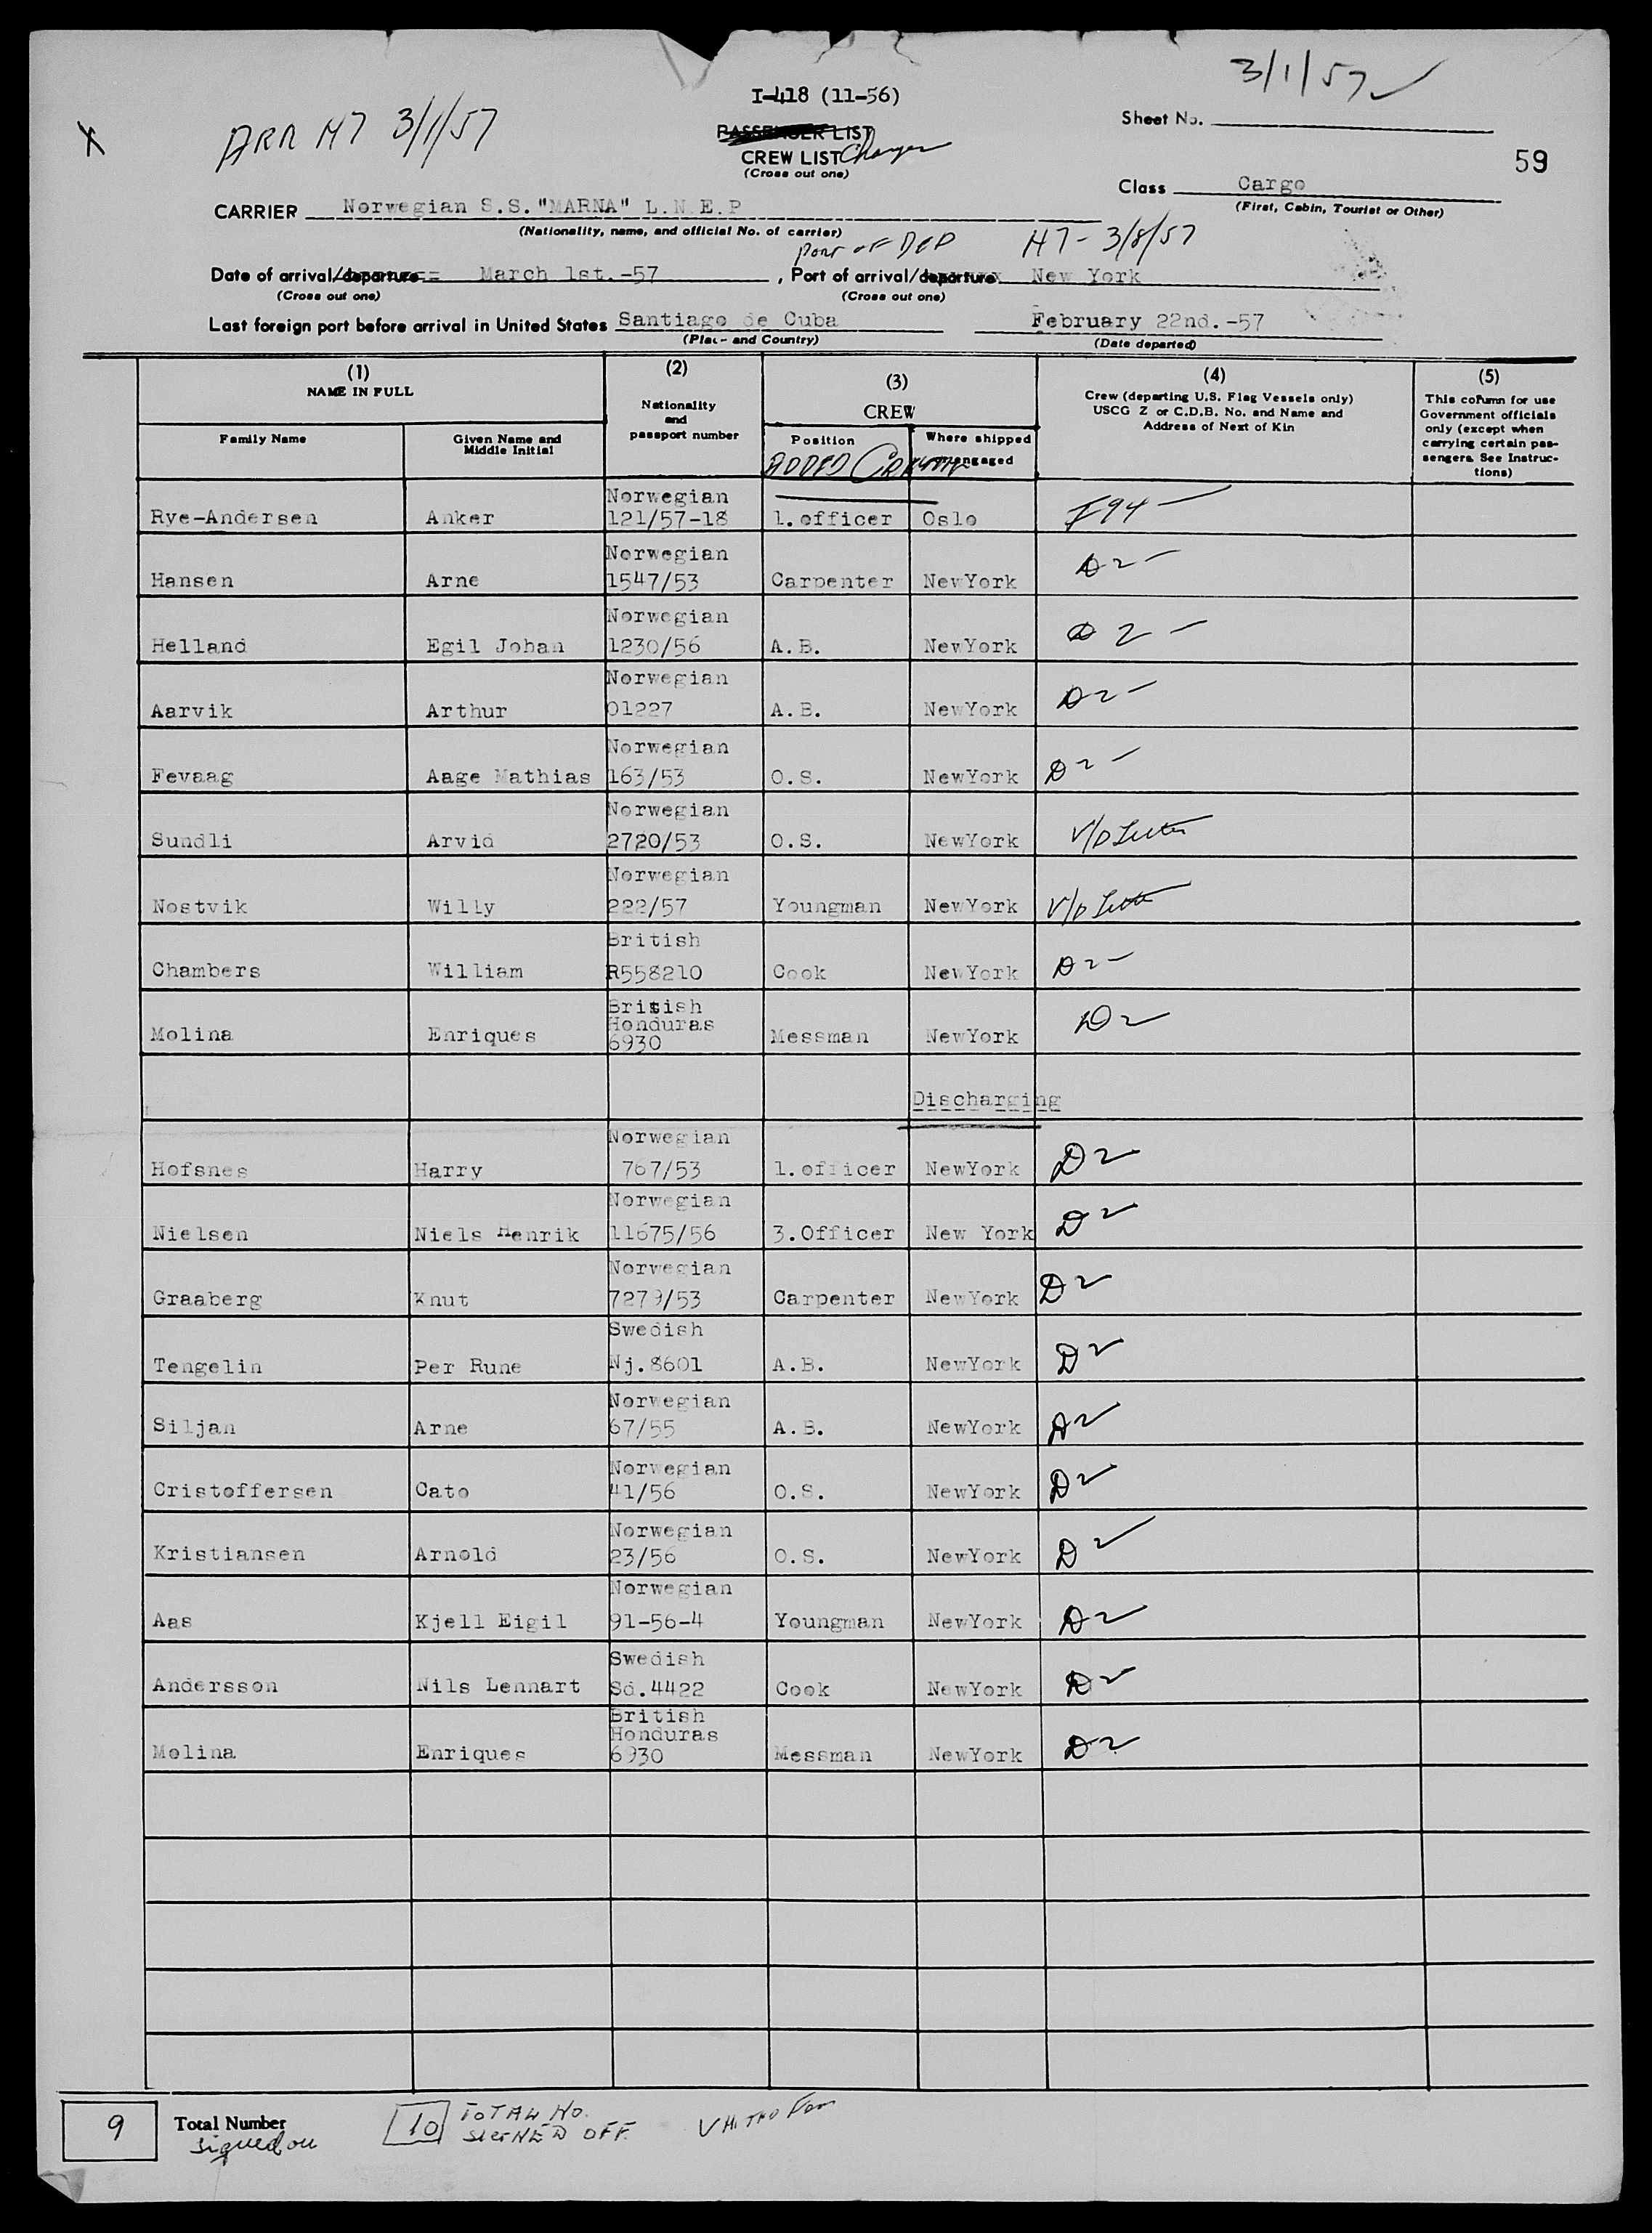 3/1/57
I-418 (11-56)
ARR H7 3/1/57
Sheet No.
PASSENGER LIST
CREW LIST Changes
(Cross out one)
59
Class Cargo
(First, Cabin, Tourist or Other)
CARRIER Norwegian S.S."MARNA" L.N.E.P
(Nationality, name, and official No. of carrier)
Port of DEP H7- 3/8/57
Date of arrival/departure March 1st.-57, Port of arrival/departure New York
(Cross out one) (Cross out one)
Last foreign port before arrival in United States Santiago de Cuba February 22nd.-57
(Place and Country) (Date departed)
(1) NAME IN FULL
Family Name
Given Name and Middle Initial
(2)
Nationality and passport number
(3)
CREW
Position
Where shipped or engaged
(4)
Crew (departing U.S. Flag Vessels only)
USCG Z or C.D.B. No. and Name and
Address of Next of Kin
(5)
This column for use
Government officials
only (except when
carrying certain pas-
sengers. See Instruc-
tions)
ADDED
Rye-Andersen Anker Norwegian 121/57-18 1.officer Oslo I94 -
Hansen Arne Norwegian 1547/53 Carpenter NewYork D2 -
Helland Egil Johan Norwegian 1230/56 A.B. NewYork D2 -
Aarvik Arthur Norwegian 01227 A.B. NewYork D2 -
Fevaag Aage Mathias Norwegian 163/53 O.S. NewYork D2 -
Sundli Arvid Norwegian 2720/53 O.S. NewYork V/D Letter
Nostvik Willy Norwegian 222/57 Youngman NewYork V/D Letter
Chambers William British R558210 Cook NewYork D2 -
Molina Enriques British Honduras 6930 Messman NewYork D2
Discharging
Hofsnes Harry Norwegian 767/53 1.officer NewYork D2
Nielsen Niels Henrik Norwegian 11675/56 3.Officer New York D2
Graaberg Knut Norwegian 7279/53 Carpenter NewYork D2
Tengelin Per Rune Swedish Nj.8601 A.B. NewYork D2
Siljan Arne Norwegian 67/55 A.B. NewYork D2
Cristoffersen Cato Norwegian 41/56 O.S. NewYork D2
Kristiansen Arnold Norwegian 23/56 O.S. NewYork D2
Aas Kjell Eigil Norwegian 91-56-4 Youngman NewYork D2
Andersson Nils Lennart Swedish Sö.4422 Cook NewYork D2
Molina Enriques British Honduras 6930 Messman NewYork D2
9 Total Number
signed on
10 TOTAL No.
SIGNED OFF